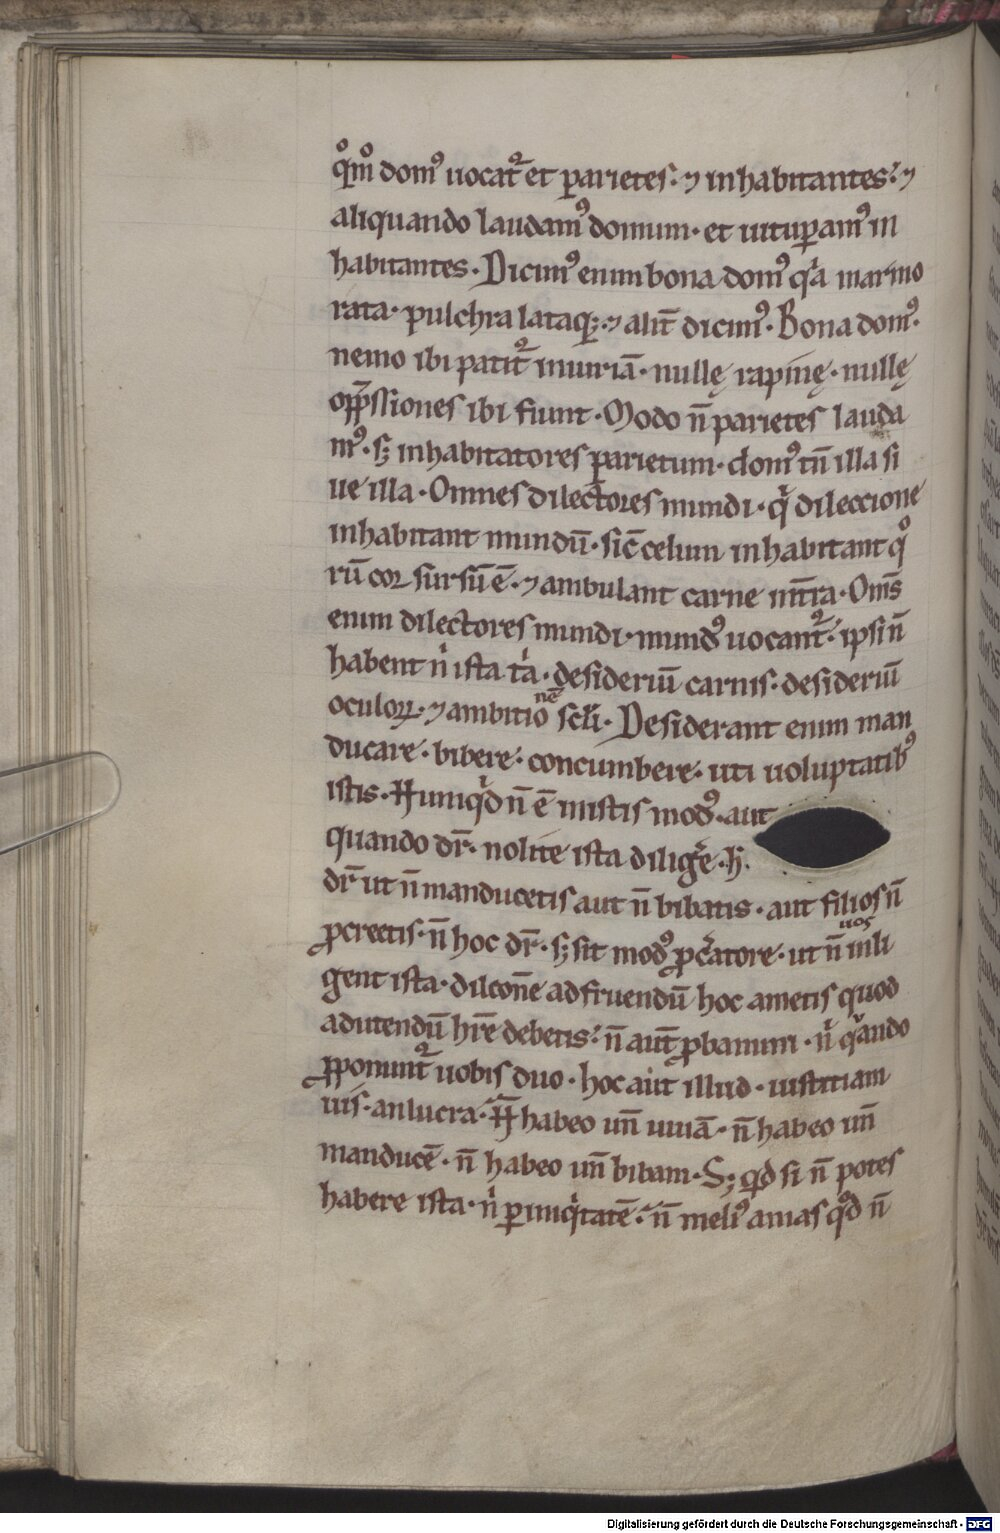 qͦmͦ domꝰ uocat᷑ et ꝑarietes. ⁊ inhabitantes. ⁊
aliquando laudamꝰ domum. et uituꝑamꝰ in
habitantes. Dicimꝰ enim bona domꝰ qͣa marmo
rata. pulchra lataq;. ⁊ alit̄ dicimꝰ. Bona domꝰ.
nemo ibi patit᷑ iniuriā. nullę rapinę. nullę
opp̄ssiones ibi fiunt. Modo n̄ parietes lauda
mꝰ. s; inhabitatores ꝑarietum. domꝰ tn̄ illa si
ue illa. Omnes dilectores mundi. qͥ dileccione
inhabitant mundū. sic̄ celum inhabitant qͦ
rū cor sursū ē. ⁊ ambulant carne int̄ra. Om̄s
enim dilectores mundi. mundꝰ uocant᷑. ipsi n̄
habent nͥ ista tͥa. desideriū carnis. desideriū
oculoꝝ. ⁊ ambitionē scl̄i. Desiderant enim man
ducare. bibere. concumbere. uti uoluptatibꝰ
istis. Numqͥd n̄ ē inistis modꝰ. aut
quando dr̄. nolite ista diligēe. h̄.
dr̄ ut n̄ manducetis aut n̄ bibatis. aut filios n̄
ꝓcreetis. n̄ hoc dr̄. s; sit modꝰ ꝓc̄atore. ut n̄ uos illi
gent ista. dilcōne ad fruendū hoc ametis quod
adutendū hr̄e debetis. n̄ aut̄ ꝓbamini. nͥ qͣando
ꝓponunt᷑ uobis duo. hoc aut illud. iustitiam
uis. an lucra. N̄ habeo un̄ uiuā. n̄ habeo un̄
manducē. n̄ habeo un̄ bibam. S; qd si n̄ potes
habere ista. nͥ ꝑ iniqͥtatē. n̄ meliꝰ amas qͦd n̄
Digitalisierung gefördert durch die Deutsche Forschungsgemeinschaft - DFG